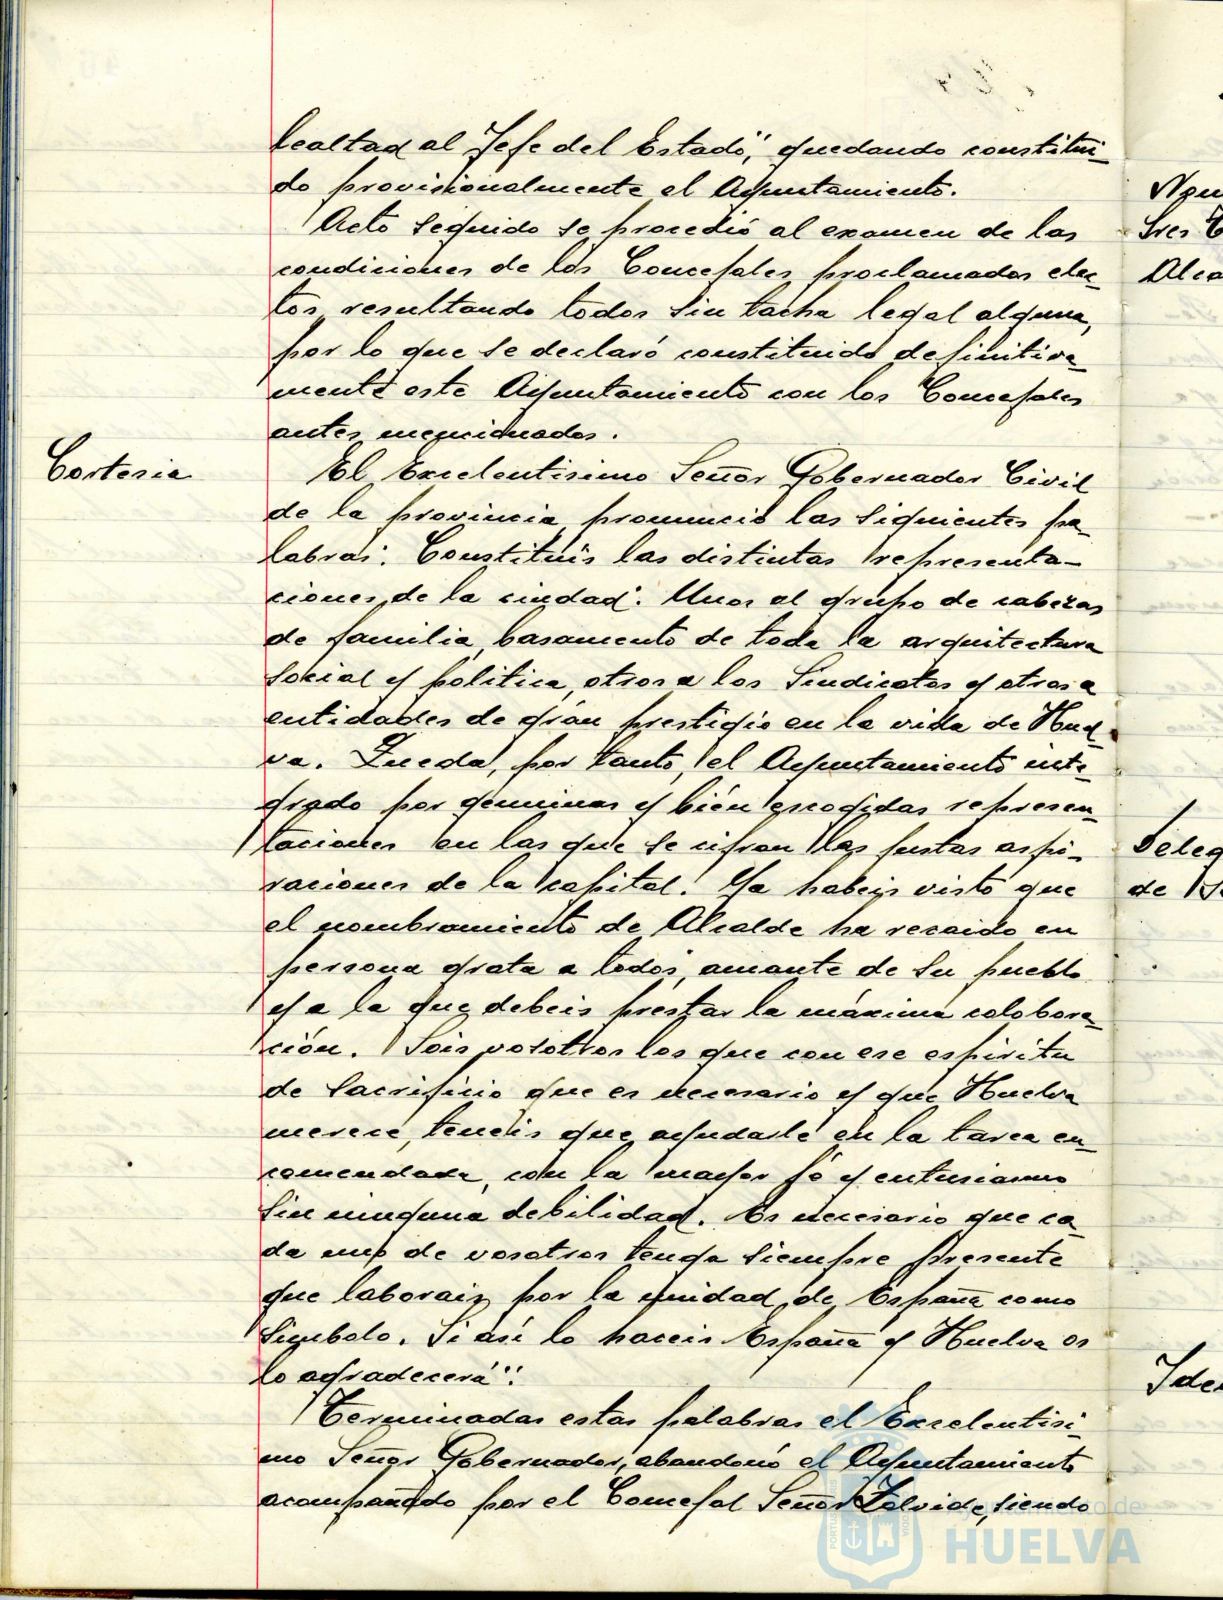 lealtad al Jefe del Estado", quedando constitui-
do provisionalmente el Ayuntamiento.
Acto seguido se procedió al examen de las
condiciones de los Concejales proclamados elec-
tos resultando todos sin tacha legal alguna,
por lo que se declaró constituido definitiva-
mente este Ayuntamiento con los Concejales
antes mencionados.
Cortesia
El Excelentisimo Señor Gobernador Civil
de la provincia, pronunció las siguientes pa-
labras: Constituis las distintas representa-
ciones de la ciudad. Unos al grupo de cabezas
de familia, basamento de toda la arquitectura
social y politica, otros a los Sindicatos y otros a
entidades de gran prestigio en la vida de Huel-
va. Queda, por tanto, el Ayuntamiento inte-
grado por genuinas y bién escogidas represen-
taciones en las que se cifran las justas aspi-
raciones de la capital. Ya habeis visto que
el nombramiento de Alcalde ha recaido en
persona grata a todos, amante de su pueblo
y a la que debeis prestar la máxima colabora-
ción. Sois vosotros los que con ese espiritu
de sacrificio que es necesario y que Huelva
merece, teneis que ayudarle en la tarea en-
comendada, con la mayor fé y entusiasmo
sin ninguna debilidad. Es necesario que ca-
da uno de vosotros tenga siempre presente
que laborais por la unidad de España como
simbolo. Si así lo haceis España y Huelva os
lo agradecerá".
Terminadas estas palabras el Excelentisi-
mo Señor Gobernador, abandonó el Ayuntamiento
acompañado por el Concejal Señor Zalvide, siendo
Sres
Alca
Deleg
de
Ayuntamiento de
HUELVA